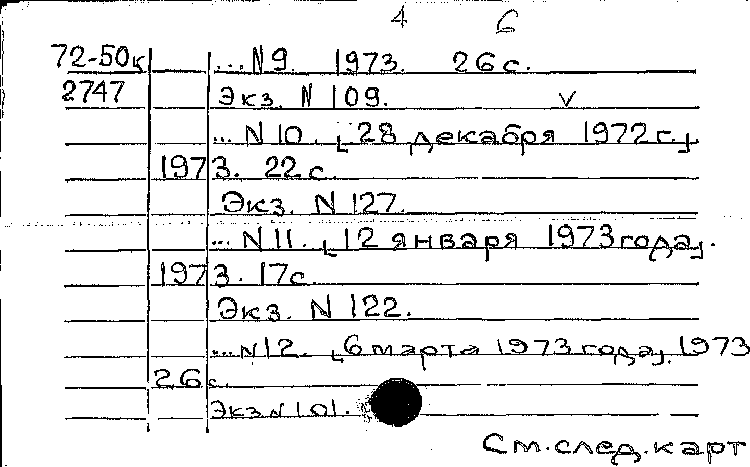 4 6
72-50к ...N9. 1973. 26с.
2747 Экз. N 109. v
...N10. [28 декабря 1972г.]
1973. 22с.
Экз. N 127.
...N11. [12 января 1973года].
1973. 17с
Экз. N 122.
...N12. [6 марта 1973года]. 1973
26с.
Экз N 101.
См.след.карт